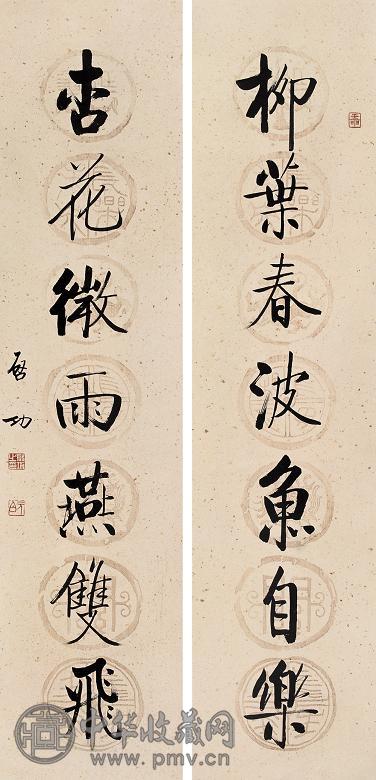 柳葉春波魚自樂
杏花微雨燕雙飛
啓功
中华收藏网
www.pmv.cn